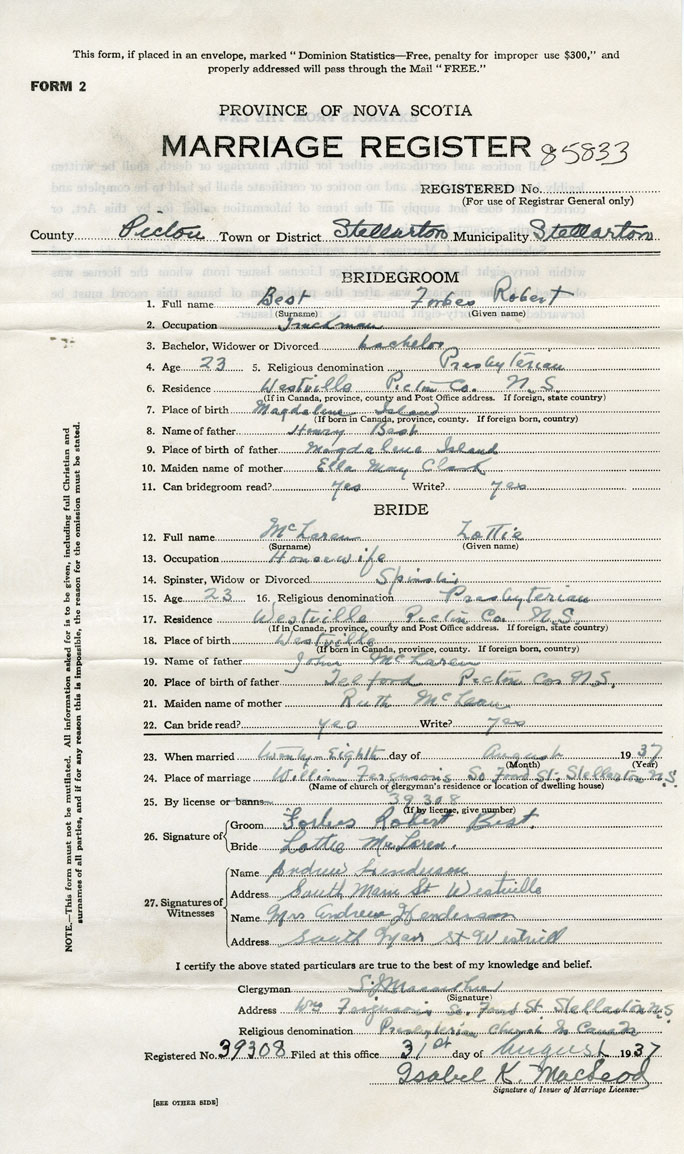 This form, if placed in an envelope, marked "Dominion Statistics—Free, penalty for improper use $300," and
properly addressed will pass through the Mail "FREE."
FORM 2
PROVINCE OF NOVA SCOTIA
MARRIAGE REGISTER 85833
REGISTERED No.
(For use of Registrar General only)
County Pictou Town or District Stellarton Municipality Stellarton
BRIDEGROOM
1. Full name Best Forbes Robert
(Surname) (Given name)
2. Occupation Truckman
3. Bachelor, Widower or Divorced bachelor
4. Age 23 5. Religious denomination Presbyterian
6. Residence Westville Pictou Co. N.S.
(If in Canada, province, county and Post Office address. If foreign, state country)
7. Place of birth Magdalene Island
(If born in Canada, province, county. If foreign born, country)
8. Name of father Henry Best
9. Place of birth of father Magdalene Island
10. Maiden name of mother Ella May Clark
11. Can bridegroom read? yes Write? yes
BRIDE
12. Full name McLaren Lottie
(Surname) (Given name)
13. Occupation Housewife
14. Spinster, Widow or Divorced
15. Age 23 16. Religious denomination Presbyterian
17. Residence Westville Pictou Co. N.S.
(If in Canada, province, county and Post Office address. If foreign, state country)
18. Place of birth Westville
(If born in Canada, province, county. If foreign born, country)
19. Name of father John McLaren
20. Place of birth of father Pictou Co N.S.
21. Maiden name of mother Ruth McLaren
22. Can bride read? yes Write? yes
23. When married twenty-Eighth day of August 1937
(Month) (Year)
24. Place of marriage William Ferguson's So. Foord St. Stellarton N.S.
(Name of church or clergyman's residence or location of dwelling house)
25. By license or banns 39308
(If by license, give number)
26. Signature of
Groom Forbes Robert Best.
Bride Lottie McLaren.
27. Signatures of Witnesses
Name Andrew Henderson
Address South Main St Westville
Name Mrs Andrew Henderson
Address South Main St Westvill
I certify the above stated particulars are true to the best of my knowledge and belief.
Clergyman
(Signature)
Address Wm Ferguson's So. Foord St Stellarton N.S.
Religious denomination Presbyterian Church In Canada
Registered No. 39308 Filed at this office 31st day of August 1937
Isabel K. MacLeod
Signature of Issuer of Marriage License.
[SEE OTHER SIDE]
NOTE.—This form must not be mutilated. All information asked for is to be given, including full Christian and
surnames of all parties, and if for any reason this is impossible, the reason for the omission must be stated.